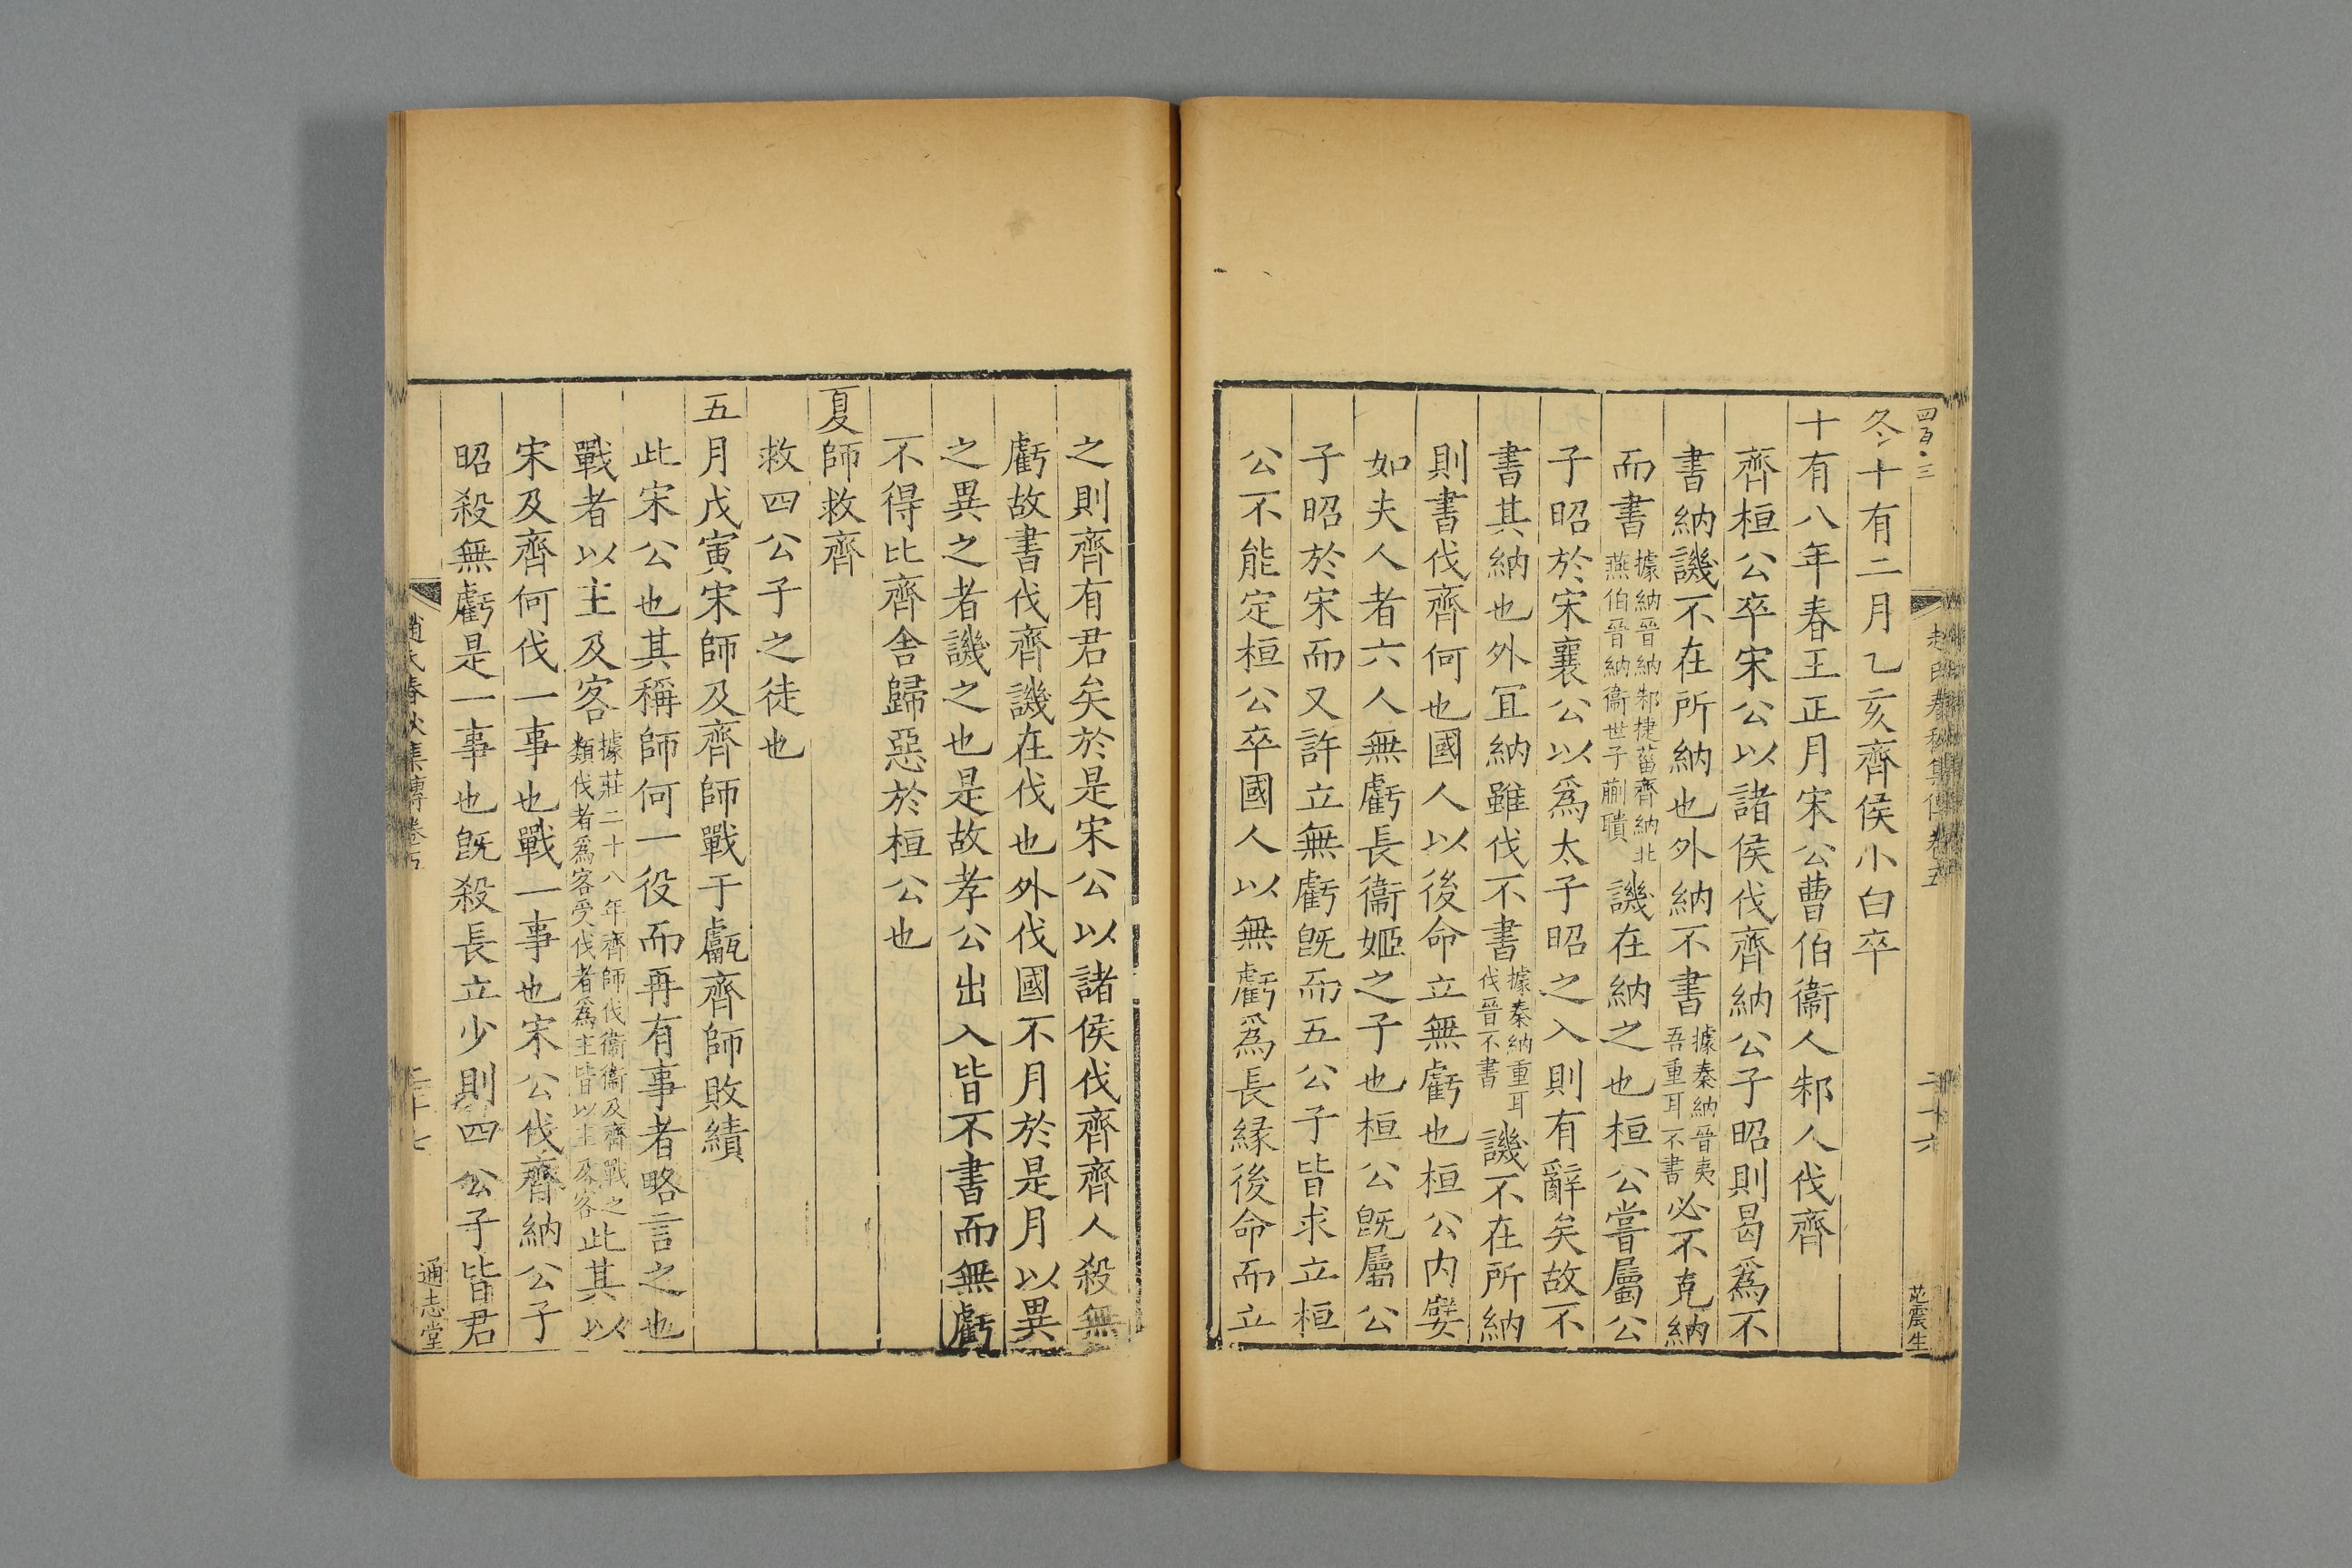 四百·三
趙氏春秋集傳卷五
二十六
芘震生
冬十有二月乙亥齊侯小白卒
十有八年春王正月宋公曹伯衞人邾人伐齊
齊桓公卒宋公以諸侯伐齊納公子昭則曷爲不
書納譏不在所納也外納不書據秦納晉夷吾重耳不書必不克納
而書據納晉納邾捷菑齊納北燕伯晉納衞世子蒯聵譏在納之也桓公嘗屬公
子昭於宋襄公以爲太子昭之入則有辭矣故不
書其納也外冝納雖伐不書據秦納重耳伐晉不書譏不在所納
則書伐齊何也國人以後命立無虧也桓公内嬖
如夫人者六人無虧長衞姬之子也桓公旣屬公
子昭於宋而又許立無虧旣而五公子皆求立桓
公不能定桓公卒國人以無虧爲長緣後命而立
之則齊有君矣於是宋公以諸侯伐齊齊人殺無
虧故書伐齊譏在伐也外伐國不月於是月以異
之異之者譏之也是故孝公出入皆不書而無虧
不得比齊舍歸惡於桓公也
夏師救齊
救四公子之徒也
五月戊寅宋師及齊師戰于甗齊師敗績
此宋公也其稱師何一役而再有事者略言之也
戰者以主及客據莊二十八年齊師伐衞衞及齊戰之類伐者爲客受伐者爲主皆以主及客此其以
宋及齊何伐一事也戰一事也宋公伐齊納公子
昭殺無虧是一事也旣殺長立少則四公子皆君
趙氏春秋集傳卷五
二十七
通志堂